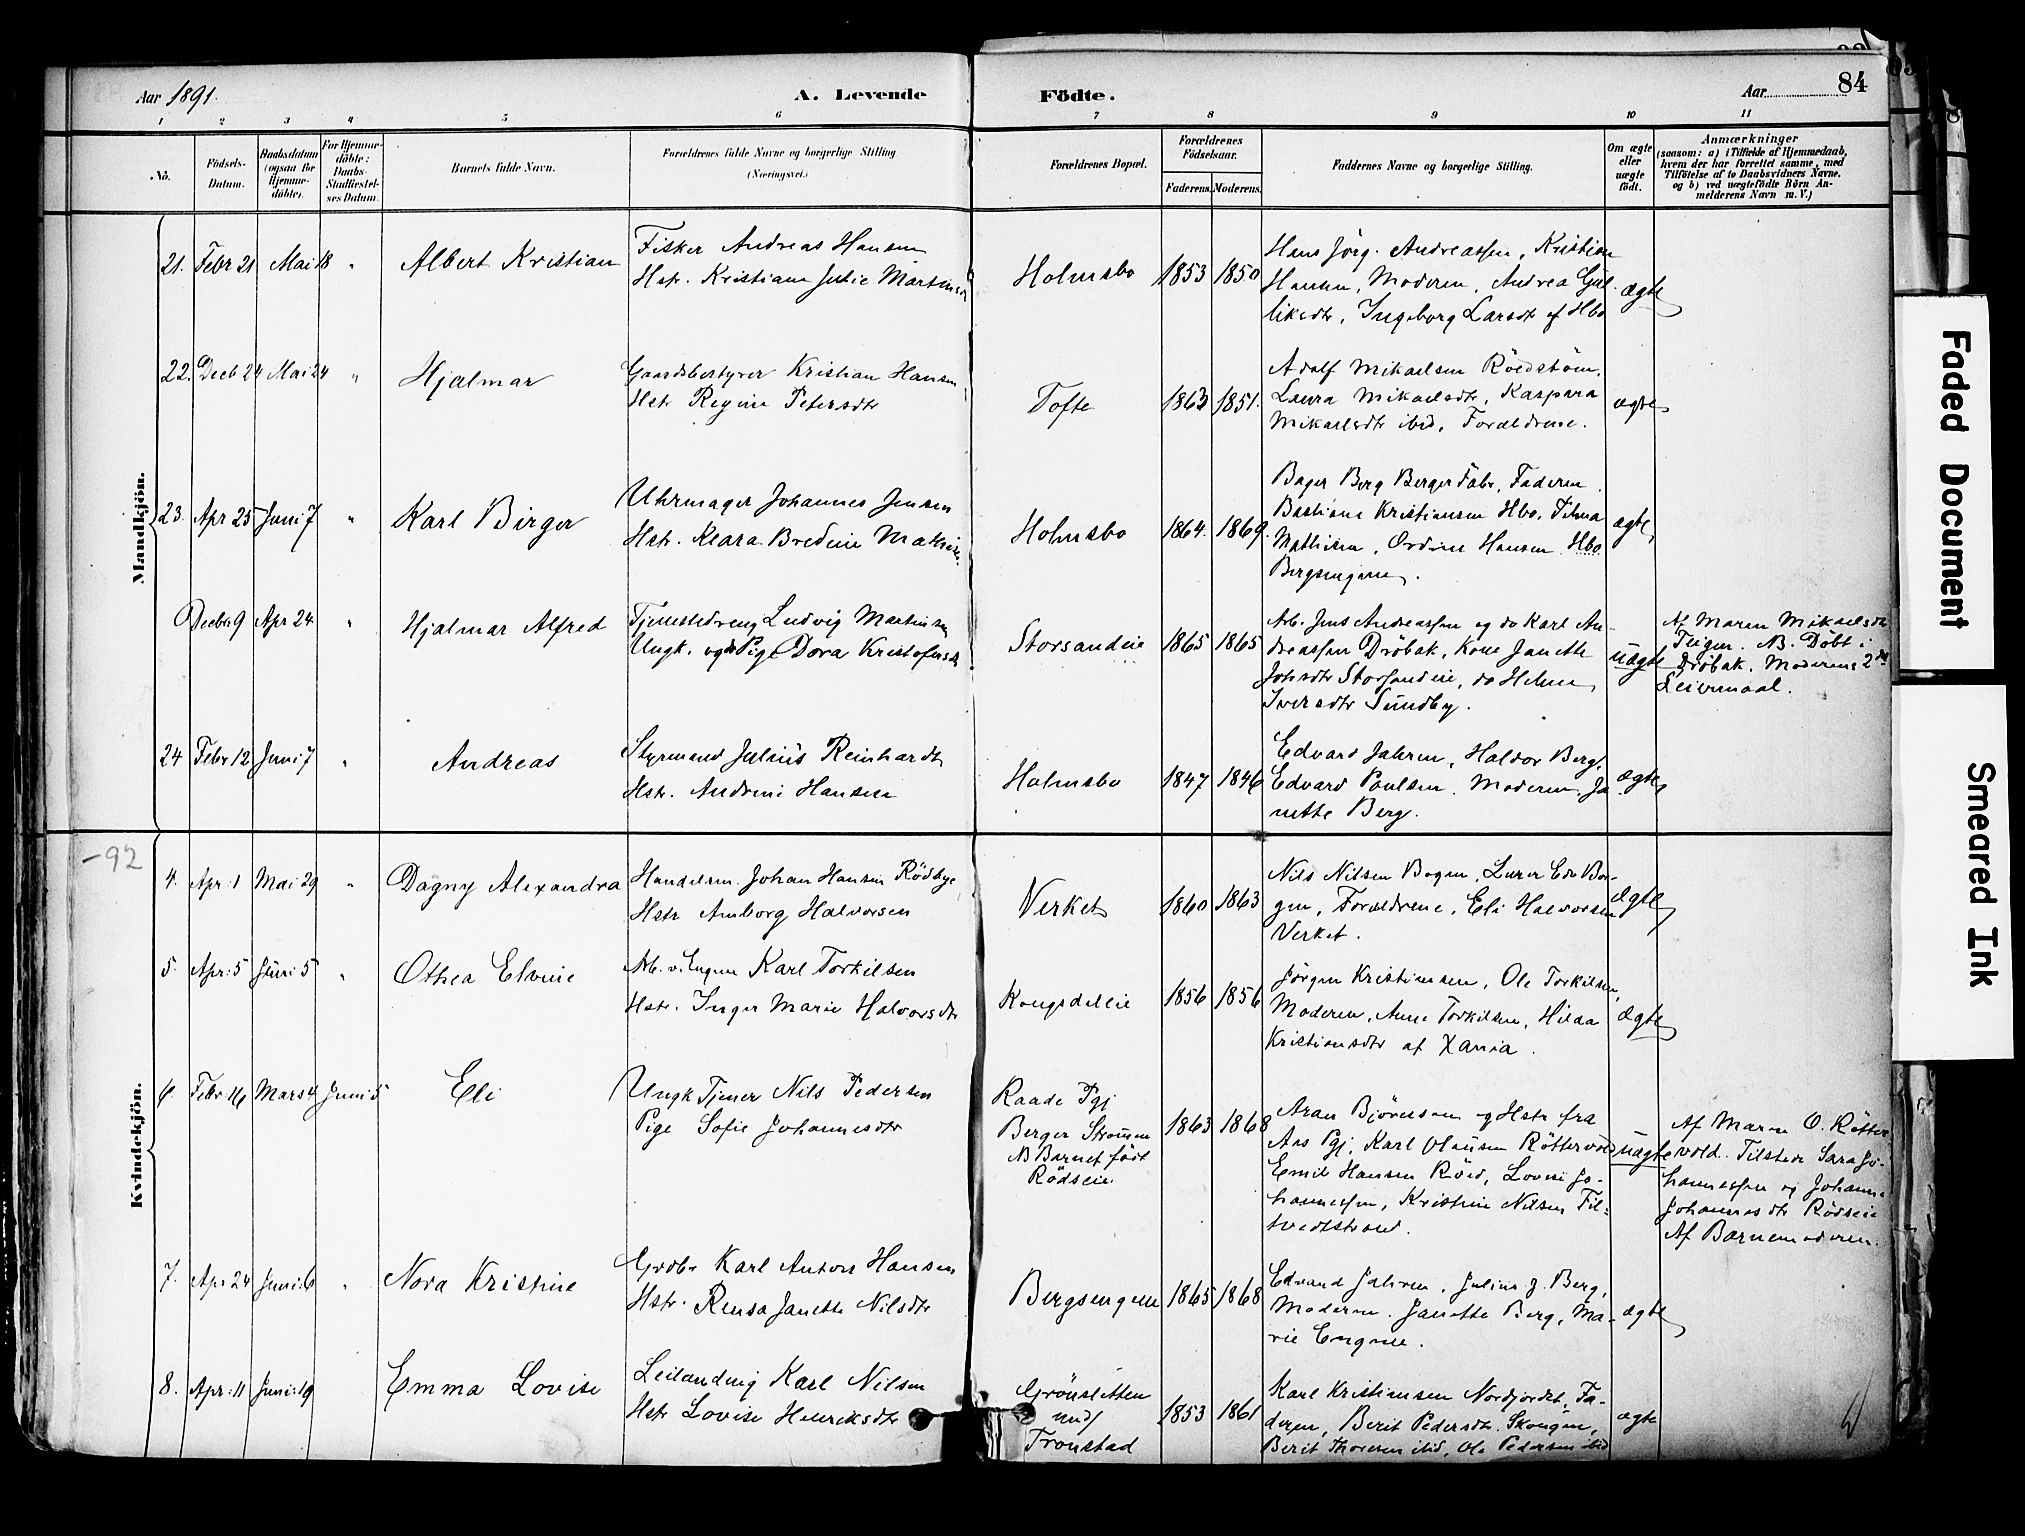 84
Aar 1891.
A. Levende
Födte.
Aar
1 2 3 4 5 6 7 8 9 10 11
No.
Födsels-Datum.
Daabsdatum (ogsaa for Hjemmedöbte).
For Hjemmedöbte: Daabs-Stadfæstelses Datum.
Barnets fulde Navn.
Forældrenes fulde Navne og borgerlige Stilling
(Næringsvei.)
Forældrenes Bopæl.
Forældrenes Födselsaar.
Faderens. Moderens.
Faddernes Navne og borgerlige Stilling.
Om ægte eller uægte födt.
Anmærkninger
(saasom: a) i Tilfælde af Hjemmedaab, hvem der har forrettet samme, med Tilföielse af to Daabsvidners Navne. og b) ved uægtefödte Börn Anmelderens Navn m. V.)
Mandkjön.
21. Febr 21 Mai 18 " Albert Kristian
Fisker Andreas Hansen
Hstr. Kristiane Julie Martinsdr
Holmsbo 1853 1850
Hans Jörg. Andreassen, Kristian
Hansen, Moderen, Andrea Gul-
liksdtr, Ingeborg Larsdtr af Hbo
ægte
22. Decb 24 Mai 24 " Hjalmar
Gaardsbestyrer Kristian Hansen
Hstr Regine Petersdtr
Tofte 1863 1851.
Adolf Mikaelsen Röedstöm,
Laura Mikaelsdtr, Kaspara
Mikaelsdtr ibid, Forældrene.
ægte
23. Apr 25 Juni 7 " Karl Birger
Uhrmager Johannes Jensen
Hstr. Klara Bredine
Holmsbo 1864. 1869.
Bager Berg Berger Fabr, Faderen.
Bastiane Kristiansen Hbo,
Mathisen, Ordine Hansen Hbo
Bergsengene.
ægte
Decbr 9 Apr 24 " Hjalmar Alfred
Tjenestedreng Ludvig Martinsen
Ungk. og Pige Dora Kristofersdtr
Storsandeie 1865 1865
Arb. Jens Andreassen og do Karl An-
dreassen Dröbak, Kone Janette
Johsdtr Storsandeie, do Helene
Iversdtr Sundby.
uægte
Af Maren Mikaelsdtr
Teigen. NB. Döbt i
Dröbak. Moderens 2det
Leiermaal.
24 Febr 12 Juni 7 " Andreas
Styrmand Julius Reinhardt
Hstr. Andrine Hansen
Holmsbo 1847 1846
Edvard Jahren, Haldor Berg,
Edvard Poulsen. Moderen. Ja-
nette Berg.
ægte
-92
Kvindekjön.
4. Apr: 1 Mai 29 " Dagny Alexandra
Handelsm. Johan Hansen Rödbye
Hstr Amborg Halvorsen
Verket 1860 1863
Nils Nilsen Bogen, Lærer Edv Bor-
gen, Forældrene, Eli Halvorsen
Verket.
ægte
5. Apr: 5 Juni 5 " Othea Elvine
Arb. v. Engene Karl Torkilsen
Hstr. Inger Marie Halvorsdtr
Kongsdeleie 1856 1856
Jörgen Kristiansen, Ole Torkilsen,
Moderen, Anne Torkilsen, Hilda
Kristiansdtr af Xania.
ægte
6. Febr 16 Mars 4 Juni 5 Eli
Ungk Tjener Nils Pedersen
Pige Sofie Johannesdtr
Raade Pgj
Berger Strömm
NB Barnet födt
Rödseie
1863 1868
Aran Björnsen og Hstr fra
Aas Pgj, Karl Olausen Röttervold
Emil Hansen Röed, Lovise Jo-
hannessen, Kristine Nilsen Fil-
tvedtstrand.
uægte
Af Maren O. Rötter-
vold. Tilstede Sara Jo-
hannessen og Johanne
Johannesdtr Rödseie
Af Barnemoderen.
7. Apr 24 Juni: 6 " Nora Kristine
Grdbr Karl Anton Hansen
Hstr. Rensa Janette Nilsdtr
Bergsengene 1865 1868
Edvard Jahren, Julius J. Berg,
Moderen. Janette Berg, Ma-
rie Engene.
ægte
8. Apr: 11 Juni: 19 Emma Lovise
Leilænding Karl Nilsen
Hstr Lovise Henriksdtr
Grönsletten
und/
Tronstad
1853 1861
Karl Kristiansen Nordjordet, Fa-
deren, Berit Pedersdtr Skougen,
Berit Thoresen ibid, Ole Pedersen ibid
ægte
Faded Document
Smeared Ink